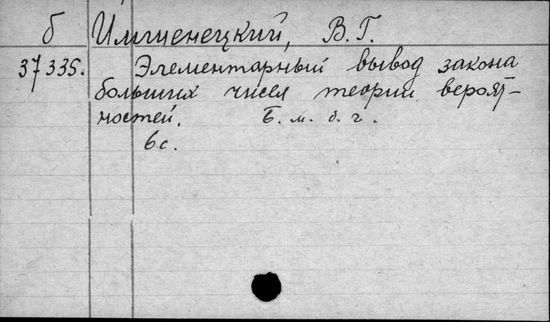 б Имшенецкий, В. Г.
37335. Элементарный вывод закона
больших чисел теории вероят-
ностей. Б. м. б. г.
6 с.